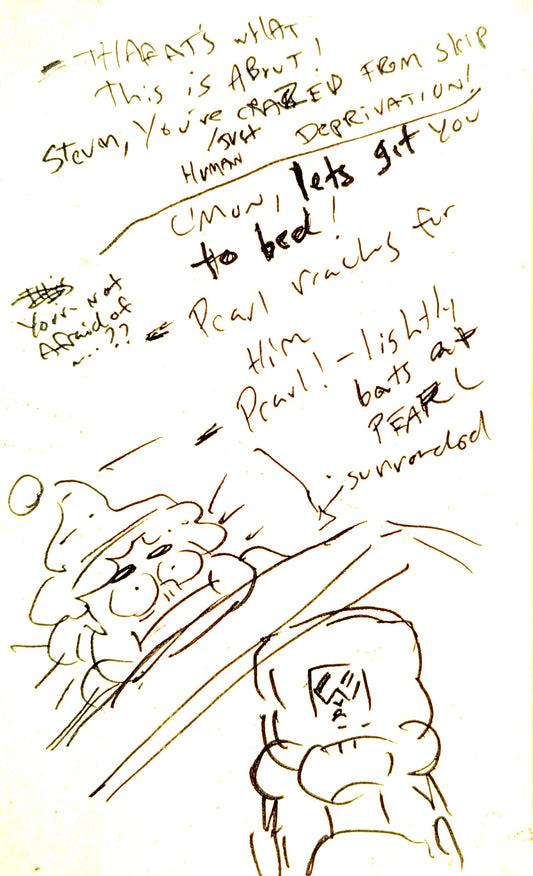 - THAAAT'S WHAT
this is ABOUT!
Steven, You've CRAZED FROM SLEEP
/JUST HUMAN DEPRIVATION!
C'MON, lets get you
to bed!
This
Your Not
Afraid of
...??
- Pearl reaches for
Him
- Pearl! - lightly
bats at
PEARL
surrounded